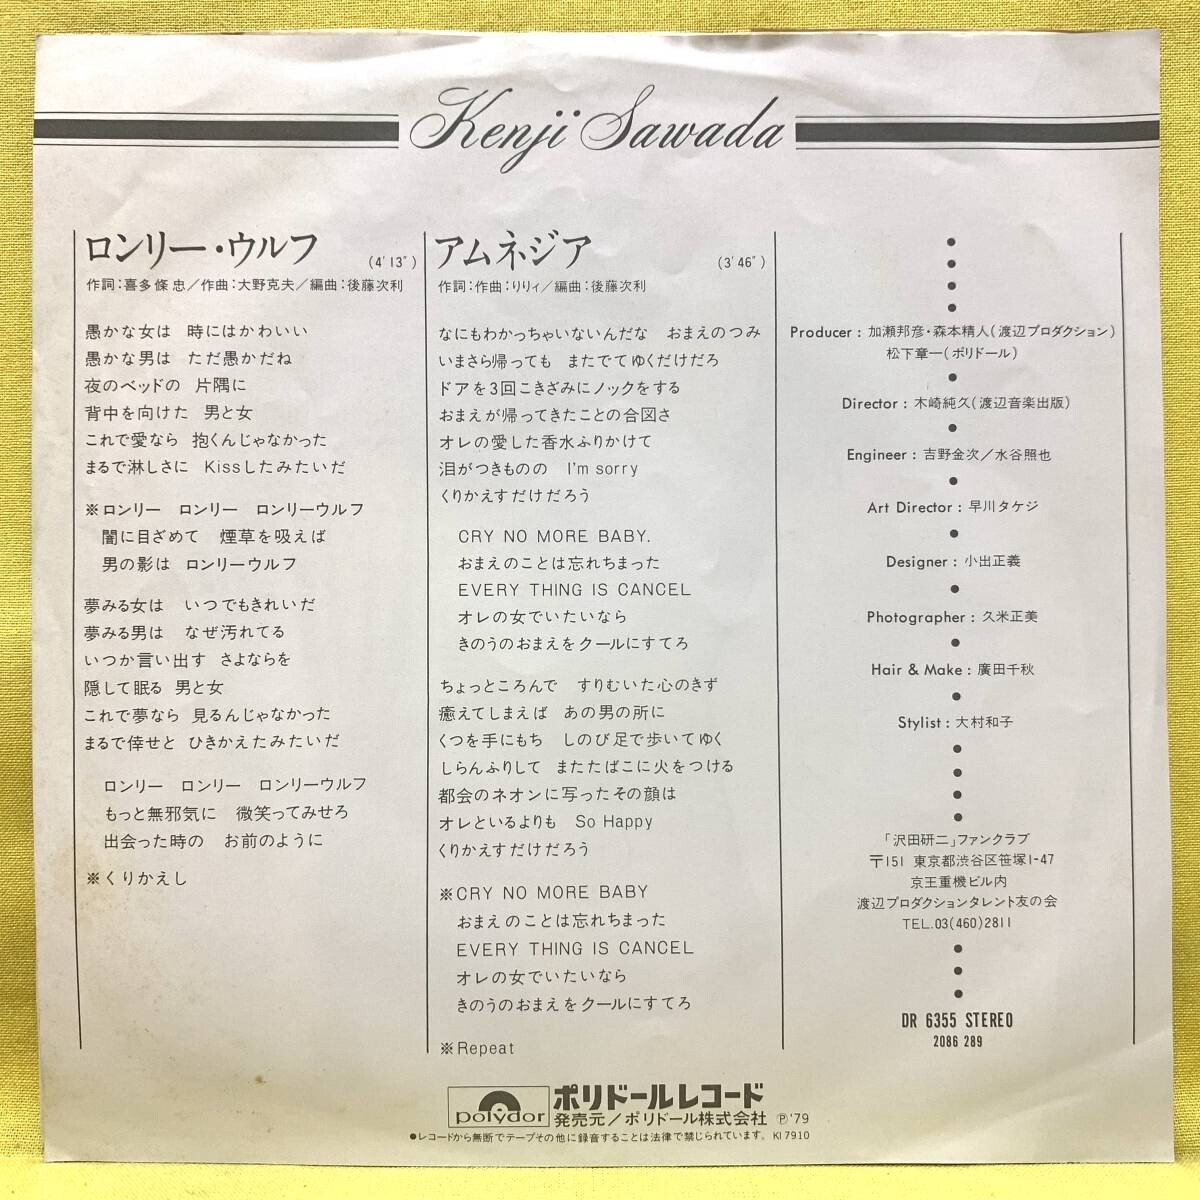 Kenji Sawada
ロンリー・ウルフ (4'13")
作詞：喜多條 忠／作曲：大野克夫／編曲：後藤次利
愚かな女は 時にはかわいい
愚かな男は ただ愚かだね
夜のベッドの 片隅に
背中を向けた 男と女
これで愛なら 抱くんじゃなかった
まるで淋しさに Kissしたみたいだ
※ロンリー ロンリー ロンリーウルフ
闇に目ざめて 煙草を吸えば
男の影は ロンリーウルフ
夢みる女は いつでもきれいだ
夢みる男は なぜ汚れてる
いつか言い出す さよならを
隠して眠る 男と女
これで夢なら 見るんじゃなかった
まるで倖せと ひきかえたみたいだ
ロンリー ロンリー ロンリーウルフ
もっと無邪気に 微笑ってみせろ
出会った時の お前のように
※くりかえし
アムネジア (3'46")
作詞：作曲：りりィ／編曲：後藤次利
なにもわかっちゃいないんだな おまえのつみ
いまさら帰っても またでてゆくだけだろ
ドアを3回こきざみにノックをする
おまえが帰ってきたことの合図さ
オレの愛した香水ふりかけて
泪がつきものの I'm sorry
くりかえすだけだろう
CRY NO MORE BABY.
おまえのことは忘れちまった
EVERY THING IS CANCEL
オレの女でいたいなら
きのうのおまえをクールにすてろ
ちょっところんで すりむいた心のきず
癒えてしまえば あの男の所に
くつを手にもち しのび足で歩いてゆく
しらんふりして またたばこに火をつける
都会のネオンに写ったその顔は
オレといるよりも So Happy
くりかえすだけだろう
※CRY NO MORE BABY
おまえのことは忘れちまった
EVERY THING IS CANCEL
オレの女でいたいなら
きのうのおまえをクールにすてろ
※Repeat
Producer：加瀬邦彦・森本精人（渡辺プロダクション）
松下章一（ポリドール）
Director：木崎純久（渡辺音楽出版）
Engineer：吉野金次／水谷照也
Art Director：早川タケジ
Designer：小出正義
Photographer：久米正美
Hair & Make：廣田千秋
Stylist：大村和子
「沢田研二」ファンクラブ
〒151 東京都渋谷区笹塚1-47
京王重機ビル内
渡辺プロダクションタレント友の会
TEL.03(460)2811
DR 6355 STEREO
2086 289
polydor ポリドールレコード
発売元／ポリドール株式会社 Ⓟ'79
●レコードから無断でテープその他に録音することは法律で禁じられています。 KI 7910